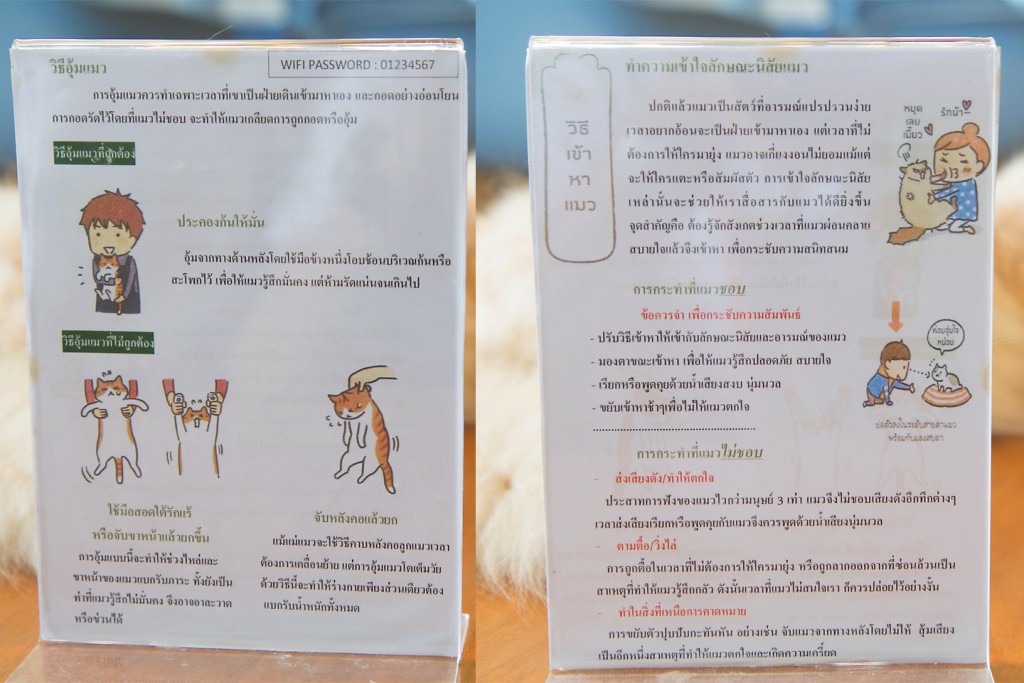 วิธีอุ้มแมว
WIFI PASSWORD : 01234567
การอุ้มแมวควรทำเฉพาะเวลาที่เขาเป็นฝ่ายเดินเข้ามาหาเอง และกอดอย่างอ่อนโยน
การกอดรัดไว้โดยที่แมวไม่ชอบ จะทำให้แมวเกลียดการถูกกอดหรืออุ้ม
วิธีอุ้มแมวที่ถูกต้อง
ประคองก้นให้มั่น
อุ้มจากทางด้านหลังโดยใช้มือข้างหนึ่งโอบช้อนบริเวณก้นหรือ
สะโพกไว้ เพื่อให้แมวรู้สึกมั่นคง แต่ห้ามรัดแน่นจนเกินไป
วิธีอุ้มแมวที่ไม่ถูกต้อง
ใช้มือสอดใต้รักแร้
หรือจับขาหน้าแล้วยกขึ้น
การอุ้มแบบนี้จะทำให้ช่วงไหล่และ
ขาหน้าของแมวแบกรับภาระ ทั้งยังเป็น
ท่าที่แมวรู้สึกไม่มั่นคง จึงอาจอาละวาด
หรือข่วนได้
จับหลังคอแล้วยก
แม้แม่แมวจะใช้วิธีคาบหลังคอลูกแมวเวลา
ต้องการเคลื่อนย้าย แต่การอุ้มแมวโตเต็มวัย
ด้วยวิธีนี้จะทำให้ร่างกายเพียงส่วนเดียวต้อง
แบกรับน้ำหนักทั้งหมด
วิธี
เข้า
หา
แมว
ทำความเข้าใจลักษณะนิสัยแมว
ปกติแล้วแมวเป็นสัตว์ที่อารมณ์แปรปรวนง่าย
เวลาอยากอ้อนจะเป็นฝ่ายเข้ามาหาเอง แต่เวลาที่ไม่
ต้องการให้ใครมายุ่ง แมวอาจเกี่ยงงอนไม่ยอมแม้แต่
จะให้ใครแตะหรือสัมผัสตัว การเข้าใจลักษณะนิสัย
เหล่านั้นจะช่วยให้เราสื่อสารกับแมวได้ดียิ่งขึ้น
จุดสำคัญคือ ต้องรู้จักสังเกตช่วงเวลาที่แมวผ่อนคลาย
สบายใจแล้วจึงเข้าหา เพื่อกระชับความสนิทสนม
หยุด
เลย
เมี้ยว
รักน้า~
การกระทำที่แมวชอบ
ข้อควรจำ เพื่อกระชับความสัมพันธ์
- ปรับวิธีเข้าหาให้เข้ากับลักษณะนิสัยและอารมณ์ของแมว
- มองตาขณะเข้าหา เพื่อให้แมวรู้สึกปลอดภัย สบายใจ
- เรียกหรือพูดคุยด้วยน้ำเสียงสงบ นุ่มนวล
- ขยับเข้าหาช้าๆเพื่อไม่ให้แมวตกใจ
ค่อยอุ่นใจ
หน่อย
ย่อตัวลงในระดับสายตาแมว
พร้อมกับมองสบตา
การกระทำที่แมวไม่ชอบ
- ส่งเสียงดัง/ทำให้ตกใจ
ประสาทการฟังของแมวไวกว่ามนุษย์ 3 เท่า แมวจึงไม่ชอบเสียงดังอึกทึกต่างๆ
เวลาส่งเสียงเรียกหรือพูดคุยกับแมวจึงควรพูดด้วยน้ำเสียงนุ่มนวล
- ตามตื้อ/วิ่งไล่
การถูกตื้อในเวลาที่ไม่ต้องการให้ใครมายุ่ง หรือถูกลากออกจากที่ซ่อนล้วนเป็น
สาเหตุที่ทำให้แมวรู้สึกกลัว ดังนั้นเวลาที่แมวไม่สนใจเรา ก็ควรปล่อยไว้อย่างงั้น
- ทำในสิ่งที่เหนือการคาดหมาย
การขยับตัวปุบปับกะทันหัน อย่างเช่น จับแมวจากทางหลังโดยไม่ให้ สุ้มเสียง
เป็นอีกหนึ่งสาเหตุที่ทำให้แมวตกใจและเกิดความเครียด